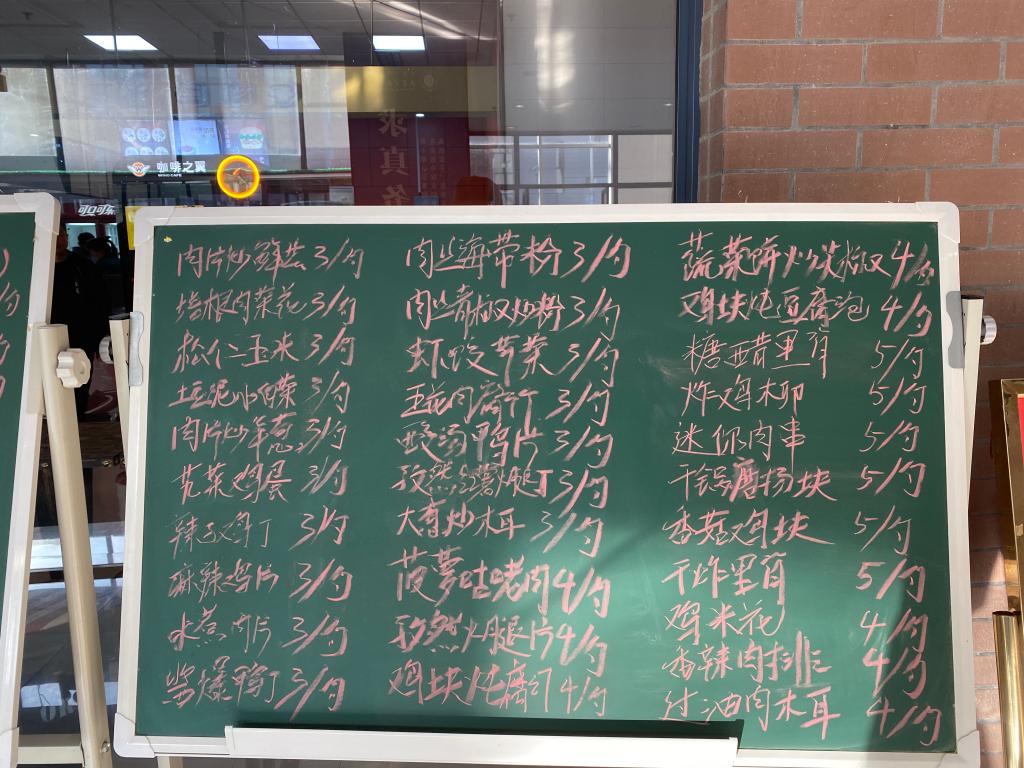 咖啡之翼
WING CAFE
可口可乐
求真务
肉片炒鲜菇 3/勺
培根肉菜花 3/勺
松仁玉米 3/勺
土豆泥小白菜 3/勺
肉片炒年糕 3/勺
芫菜鸡蛋 3/勺
辣子鸡丁 3/勺
麻辣鸡片 3/勺
水煮肉片 3/勺
酱爆鸭丁 3/勺
肉丝海带粉 3/勺
肉丝青椒炒粉 3/勺
虾皮芹菜 3/勺
五花肉腐竹 3/勺
鸭片 3/勺
孜然腿丁 3/勺
大葱炒木耳 3/勺
菠萝咕咾肉 4/勺
孜然火腿片 4/勺
鸡块炖腐竹 4/勺
蔬菜饼炒 4/勺
鸡块炖豆腐泡 4/勺
糖醋里脊 5/勺
炸鸡柳 5/勺
迷你肉串 5/勺
干锅块 5/勺
香菇鸡块 5/勺
干炸里脊 5/勺
鸡米花 4/勺
香辣肉排 4/勺
过油肉木耳 4/勺